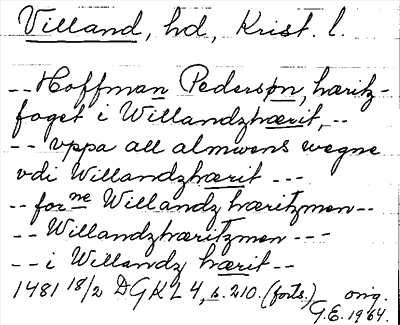 Villand, hd, Krist. l.
-- Hoffman Pederson, hæritz-
foget i Willandzhærit, --
-- vppa all almwens wegne
vdi Willandzhærit ---
-- forne Willandz hæritzmen --
-- Willandzhæritzmen ---
-- i Willandz hærit --
1481 18/2 DGKL 4, s. 210. (forts.) orig.
G.E. 1964.